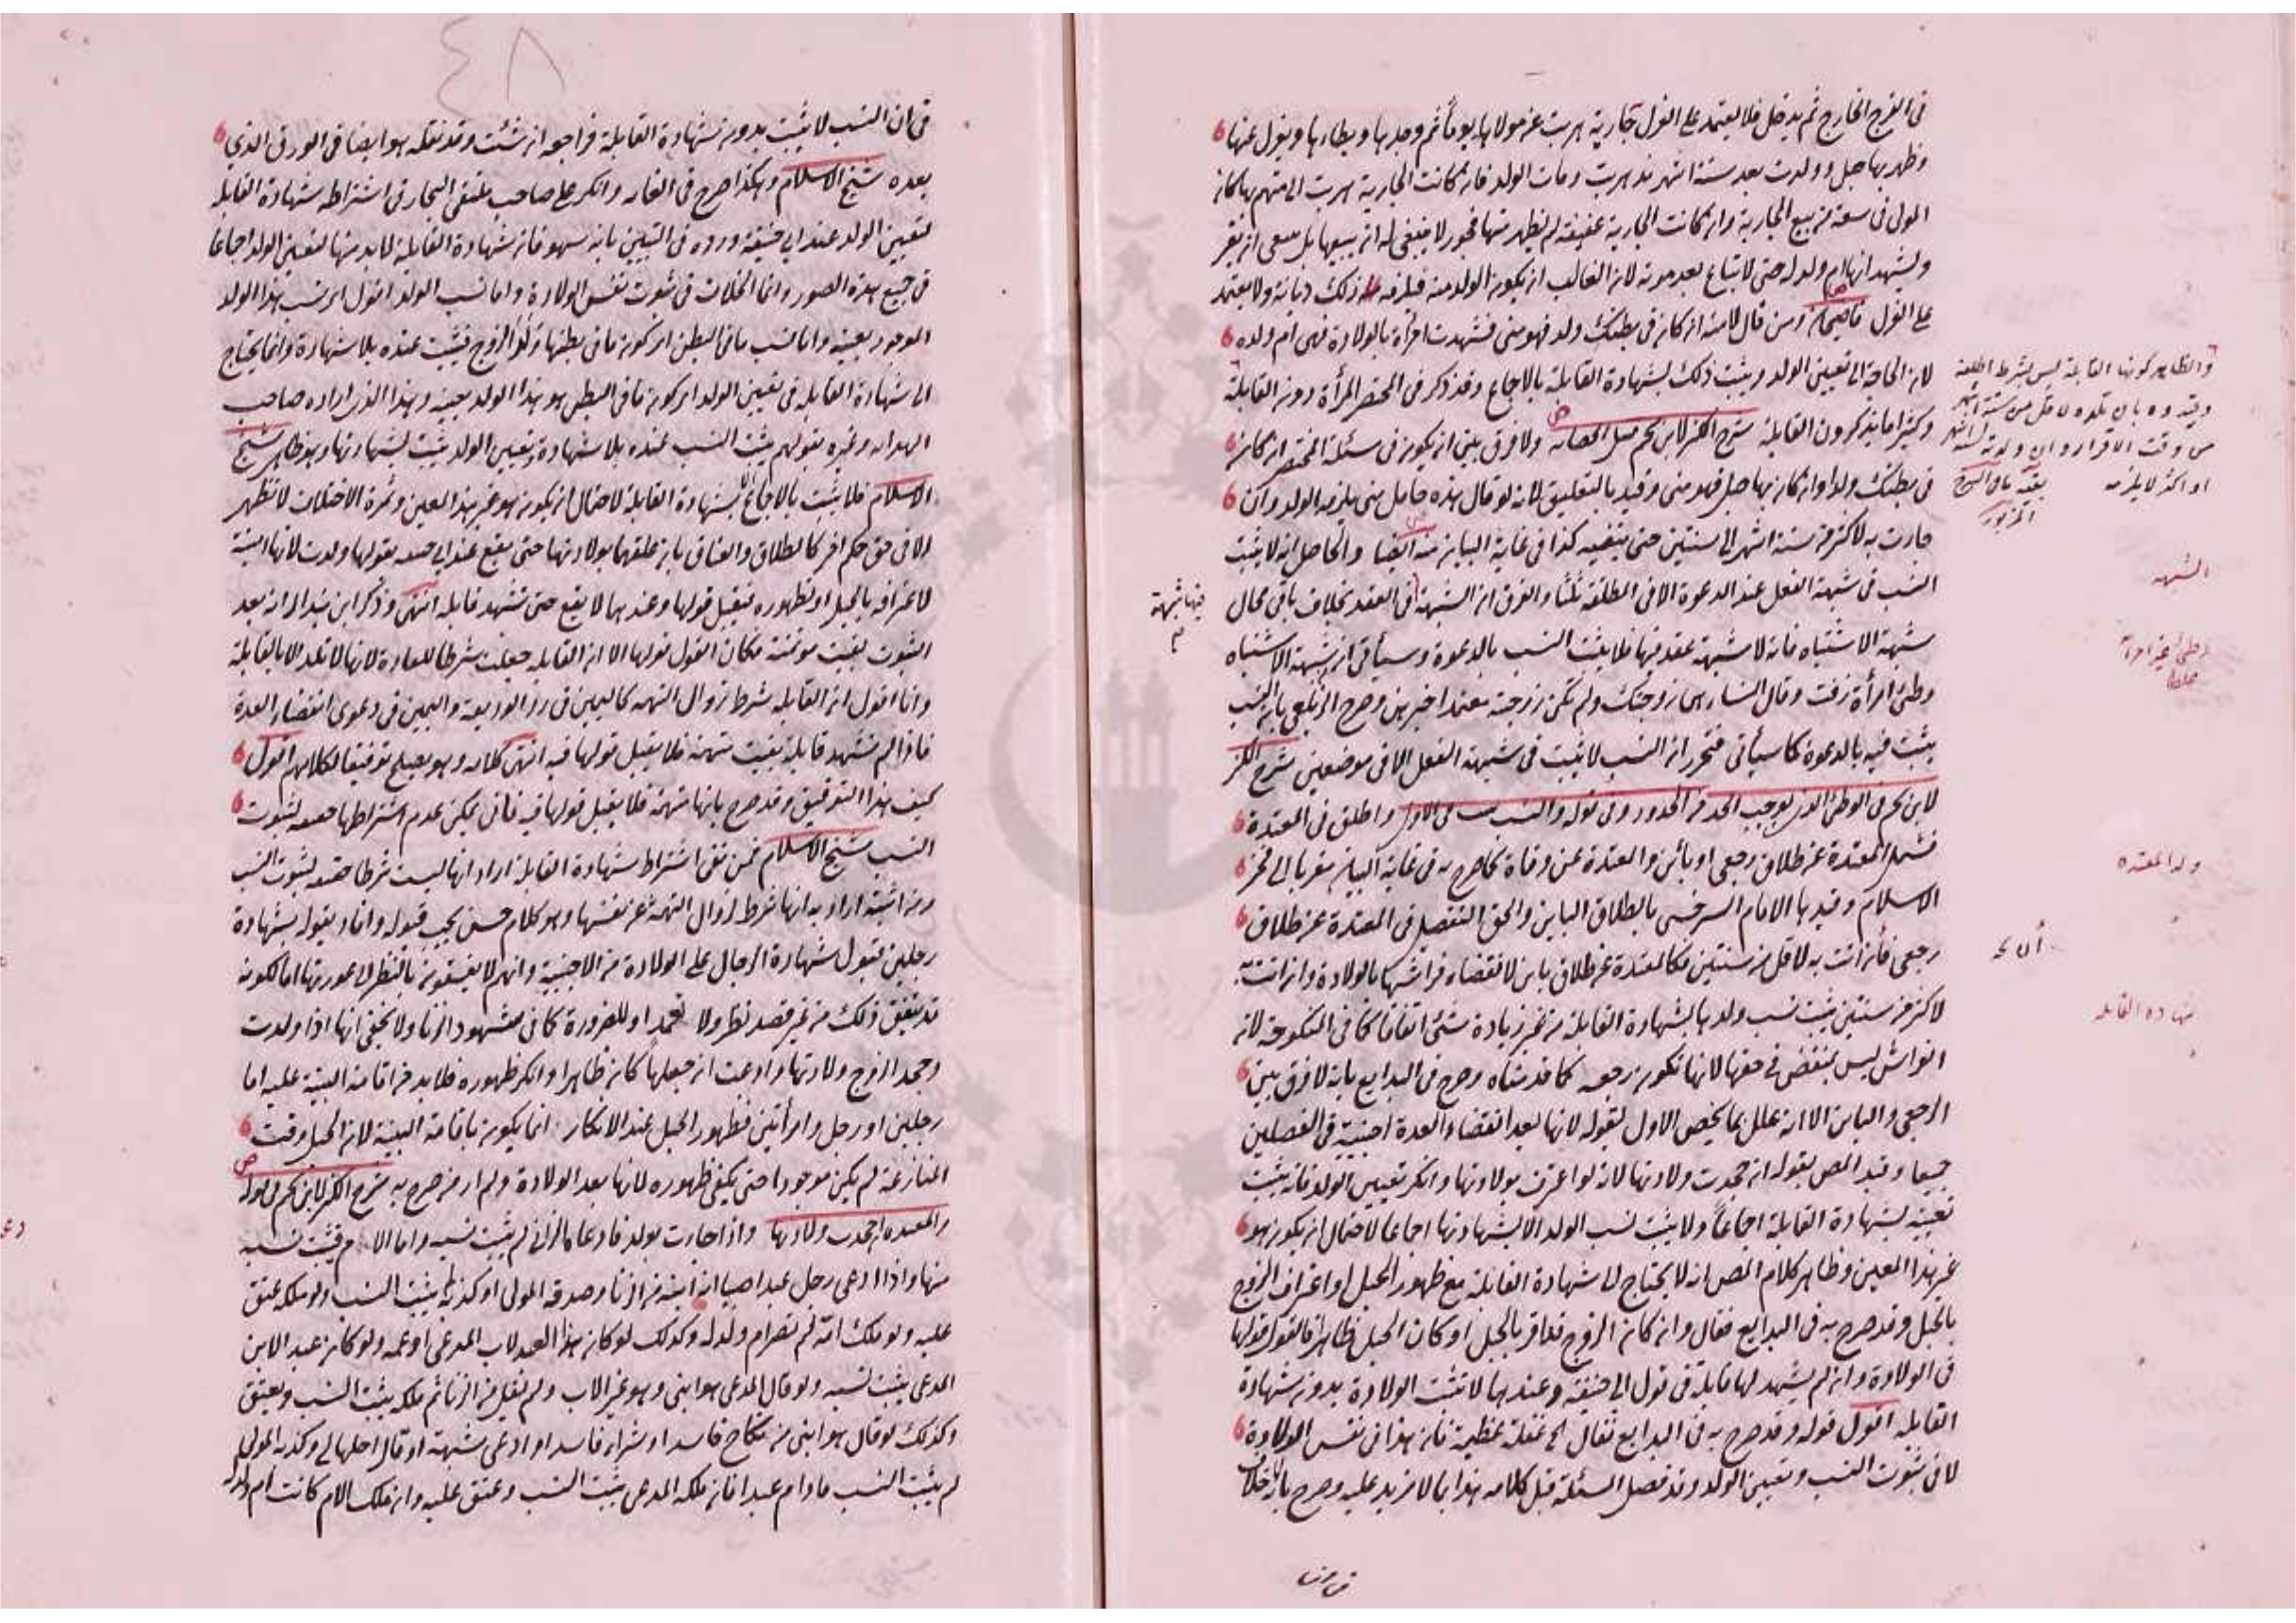 في الفرج الخارج ثم يدخل فلا يعتمد على العزل جارية هربت عن مولاها يوما ثم وجدها ويطاءها ويعزل عنها
وظهر بها حبل وولدت بعد ستة اشهر مذ هربت ومات الولد فان كانت الجارية هربت الى متهم بها كان
المولى في سعة من بيع الجارية وان كانت الجارية عفيفة لم يظهر منها فجور لا ينبغي له ان يبيعها بل ينبغي ان يقر
ويشهد انها ام ولد له حتى لا تباع بعد موته لان الغالب ان يكون الولد منه فيلزمه ذلك ديانة ولا يعتمد
على العزل ومن قال لامته ان كان في بطنك ولد فهو مني فشهدت امرأة بالولادة فهي ام ولده
لان الحاجة الى تعيين الولد ويثبت ذلك بشهادة القابلة بالاجماع وقد ذكر في المختصر المرأة دون القابلة
وكثيرا ما يذكرون القابلة شرح الكنز لابن نجيم قبيل الحضانة ولا فرق بين ان يكون في مسئلة المختصر ان كان
في بطنك ولد او ان كان بها حبل فهو مني وقيد بالتعليق لانه لو قال هذه حامل مني يلزمه الولد وان
جاءت به لاكثر من ستة اشهر الى سنتين حتى ينفيه كذا في غاية البيان منه ايضا والحاصل انه لا يثبت
النسب في شبهة الفعل عند الدعوة الا في المطلقة ثلثا والفرق ان الشبهة في العقد بخلاف باقي محال
شبهة الاشتباه فانه لا شبهة عقد فيها فلا يثبت النسب بالدعوة وسيأتي ان شبهة الاشتباه
وطئ امرأة زفت وقال النساء هي زوجتك ولم تكن زوجته معتمدا خبرهن وصرح الزيلعي بان النسب
يثبت فيه بالدعوة كما سيأتي فتحرر ان النسب لا يثبت في شبهة الفعل الا في موضعين شرح الكنز
لابن نجيم في الوطئ الذي يوجب الحد من الحدود وفي قوله والنسب يثبت في الاولى واطلق في المعتدة
فشمل المعتدة عن طلاق رجعي او بائن والمعتدة عن وفاة كما صرح به في غاية البيان معزيا الى فخر
الاسلام وقيدها الامام السرخسي بالطلاق البائن والحق التفصيل في المعتدة عن طلاق
رجعي فان اتت به لاقل من سنتين فكالمعتدة عن طلاق بائن لانقضاء فراشها بالولادة وان اتت به
لاكثر من سنتين يثبت نسب ولدها بشهادة القابلة من غير زيادة شئ اتفاقا كما في المنكوحة لانه
الفراش ليس بمنقض في حقها لانها تكون رجعة كما قدمناه وصرح في البدايع بانه لا فرق بين
الرجعي والبائن الا انه علل بما يخص الاول لقوله لانها بعد انقضاء العدة اجنبية في الفصلين
جميعا وقيد المص بقوله ان جحدت ولادتها لانه لو اعترف بولادتها وانكر تعيين الولد فانه يثبت
تعينه بشهادة القابلة اجماعا ولا يثبت نسب الولد الا بشهادتها اجماعا لاحتمال ان يكون هو
غير هذا المعين وظاهر كلام المص انه لا يحتاج الى شهادة القابلة مع ظهور الحبل او اعتراف الزوج
بالحبل وقد صرح به في البدايع فقال وان كان الزوج قد اقر بالحبل او كان الحبل ظاهرا فالقول قولها
في الولادة وان لم يشهد لها قابلة في قول ابي حنيفة وعندهما لا تثبت الولادة بدون شهادة
القابلة اقول قوله وقد صرح به في البدايع فقال الخ غفلة عظيمة فان هذا في نفس الولادة
لا في ثبوت النسب وتعيين الولد وقد فصل المسئلة قبل كلامه هذا بما لا مزيد عليه وصرح بانه لا خلاف
والظاهر كونها القابلة ليس بشرط اطلقه
وقيدوه بان تلده لاقل من ستة اشهر
من وقت الاقرار وان ولدته لستة اشهر
او اكثر لا يلزمه
الشبهة
فيها شبهة
وطئ غير امرأته
ولد المعتدة
شهادة القابلة
٤٨
في ان النسب لا يثبت بدون شهادة القابلة فراجعه ان شئت وقد نقله هو ايضا في الورق الذي
بعده شيخ الاسلام وهكذا صرح في الغاية وانكر على صاحب ملتقى البحار في اشتراطه شهادة القابلة
لتعيين الولد عند ابي حنيفة ورده في التبيين بانه سهو فان شهادة القابلة لا بد منها لتعيين الولد اجماعا
في جميع هذه الصور وانما الخلاف في ثبوت نفس الولادة واما نسب الولد اقول اي نسب هذا الولد
الموجود بعينه واما نسب ما في البطن اي كون ما في بطنها من الزوج فيثبت عنده بلا شهادة وانما يحتاج
الى شهادة القابلة في تعيين الولد اي كون ما في البطن هو هذا الولد بعينه وهذا الذي اراده صاحب
الهداية وغيره بقولهم يثبت النسب عنده بلا شهادة وتعيين الولد يثبت بشهادتها وهو ظاهر شيخ
الاسلام فلا يثبت بالاجماع الا بشهادة القابلة لاحتمال ان يكون هو غير هذا المعين وثمرة الاختلاف لا تظهر
الا في حق حكم اخر كالطلاق والعتاق بان علقهما بولادتها حتى يقع عند ابي حنيفة بقولها ولدت لانها امينة
لاعترافه بالحبل او لظهوره فيقبل قولها وعندهما لا يقع حتى تشهد قابلة انتهى وذكر ابن بندار انه بعد
الثبوت بقيت مؤتمنة فكان القول قولها الا ان القابلة جعلت شرطا للعادة لانها لا تلد الا بالقابلة
وانا اقول ان القابلة شرط زوال التهمة كاليمين في رد الوديعة واليمين في دعوى انقضاء العدة
فاذا لم تشهد قابلة بقيت متهمة فلا يقبل قولها فيه انتهى كلامه وهو يصلح توفيقا لكلامهم اقول
كيف هذا التوفيق وقد صرح بانها متهمة فلا يقبل قولها فيه فانى يمكن عدم اشتراطها حقيقة لثبوت
النسب شيخ الاسلام فمن نفى اشتراط شهادة القابلة اراد انها ليست شرطا حقيقة لثبوت النسب
ومن اثبته اراد به انها شرط لزوال التهمة عن نفسها وهو كلام حسن يجب قبوله وافاد بقوله بشهادة
رجلين قبول شهادة الرجال على الولادة من الاجنبية وانهم لا يفسقون بالنظر الى عورتها اما لكونه
قد يتفق ذلك من غير قصد نظر ولا تعمد او للضرورة كما في شهود الزنا ولا يخفى انها اذا ولدت
وجحد الزوج ولادتها وادعت ان حبلها كان ظاهرا وانكر ظهوره فلا بد من اقامة البينة عليه اما
رجلين او رجل وامرأتين فظهور الحبل عند الانكار انما يكون باقامة البينة لان الحبل وقت
المنازعة لم يكن موجودا حتى يكفي ظهوره لانها بعد الولادة ولم ار من صرح به شرح الكنز لابن نجيم في قوله
والمعتدة ان جحدت ولادتها واذا جاءت بولد فادعاه الزاني لم يثبت نسبه واما الام فيثبت نسبه
منها واذا ادعى رجل عبدا صبيا انه ابنه من الزنا وصدقه المولى او كذبه لم يثبت النسب ولو ملكه عتق
عليه ولو ملك امه لم تصر ام ولد له وكذلك لو كان هذا العبد لاب المدعي او عمه ولو كان عبد الابن
المدعي يثبت نسبه ولو قال المدعي هو ابني وهو غير الاب ولم يقل من الزنا ثم ملكه يثبت النسب ويعتق
وكذلك لو قال هو ابني من نكاح فاسد او شراء فاسد او ادعى شبهة او قال احلها لي وكذبه المولى
لم يثبت النسب ما دام عبدا فان ملكه المدعي يثبت النسب وعتق عليه وان ملك الام كانت ام ولد له